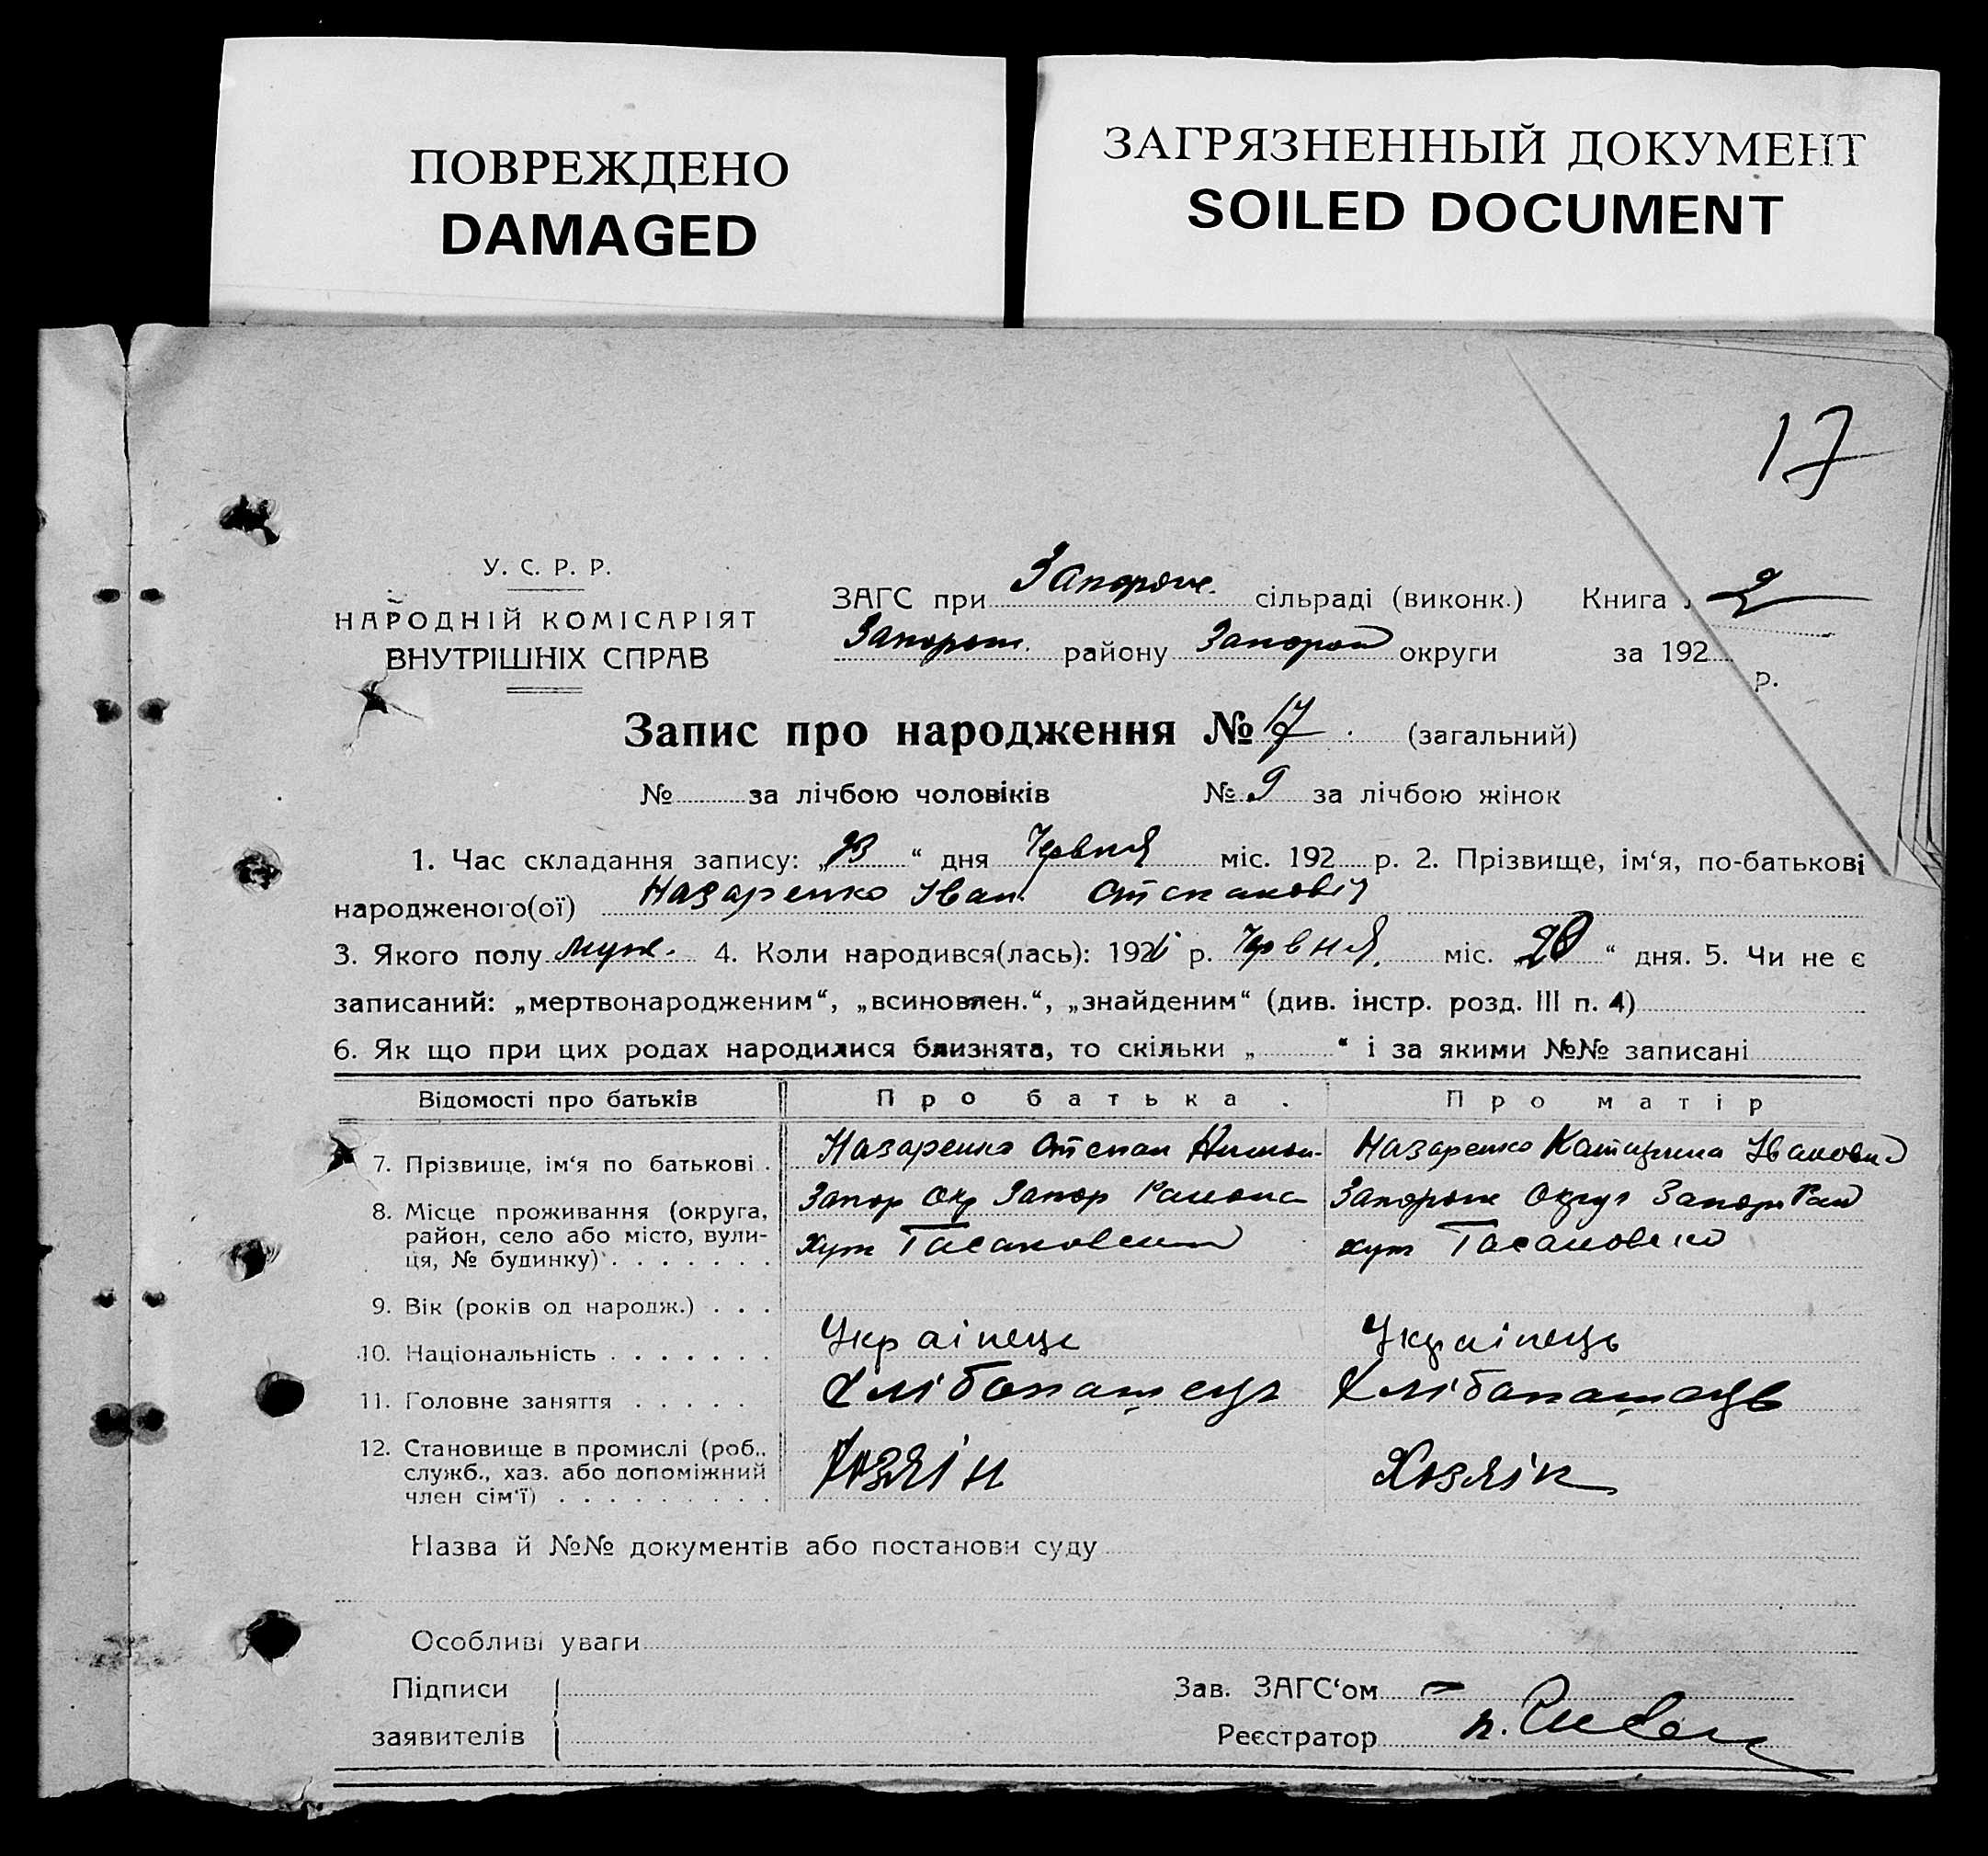 ПОВРЕЖДЕНО
DAMAGED
ЗАГРЯЗНЕННЫЙ ДОКУМЕНТ
SOILED DOCUMENT
17
У. С. Р. Р.
НАРОДНІЙ КОМІСАРІЯТ
ВНУТРІШНІХ СПРАВ
ЗАГС при Запорож. сільраді (виконк.) Книга 2
Запорож. району Запорож округи за 192 р.
Запис про народження № 17. (загальний)
№ за лічбою чоловіків № 9 за лічбою жінок
1. Час складання запису: „23“ дня Червня міс. 192 р. 2. Прізвище, ім‘я, по-батькові
народженого(ої) Назаренко Іван Степановіч
3. Якого полу муж. 4. Коли народився(лась): 192 р. Червня міс. „20“ дня. 5. Чи не є
записаний: „мертвонародженим“, „всиновлен.“, „знайденим“ (див. інстр. розд. III п. 4)
6. Як що при цих родах народилися близнята, то скільки „ “ і за якими №№ записані
Відомості про батьків Про батька. Про матір
7. Прізвище, ім‘я по батькові. Назаренко Степан Назаренко Катирина Івановна
8. Місце проживання (округа, Запор Окр Запор Района Запорож Округ Запор Рай
район, село або місто, вули- хут хут
ця, № будинку)
9. Вік (років од народж.)
10. Національність Українець Українець
11. Головне заняття Хлібопашець Хлібопашець
12. Становище в промислі (роб.,
служб., хаз. або допоміжний Хозяін Хозяін
член сім‘ї)
Назва й №№ документів або постанови суду
Особливі уваги
Підписи Зав. ЗАГС‘ом
заявителів Реєстратор